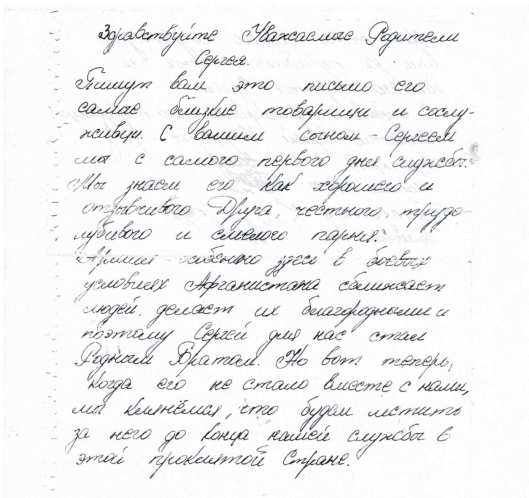 Здравствуйте Уважаемые Родители
Сергея.
Пишут вам это письмо его
самые близкие товарищи и сослу-
живцы. С вашим сыном - Сергеем
мы с самого первого дня службы.
Мы знаем его как хорошего и
отзывчивого Друга, честного, трудо-
любивого и смелого парня.
Армия особенно здесь в боевых
условиях Афганистана сближает
людей, делает их благородными и
поэтому Сергей для нас стал
Родным Братом. Но вот теперь,
когда его не стало вместе с нами,
мы клянёмся, что будем мстить
за него до конца нашей службы в
этой проклятой стране.